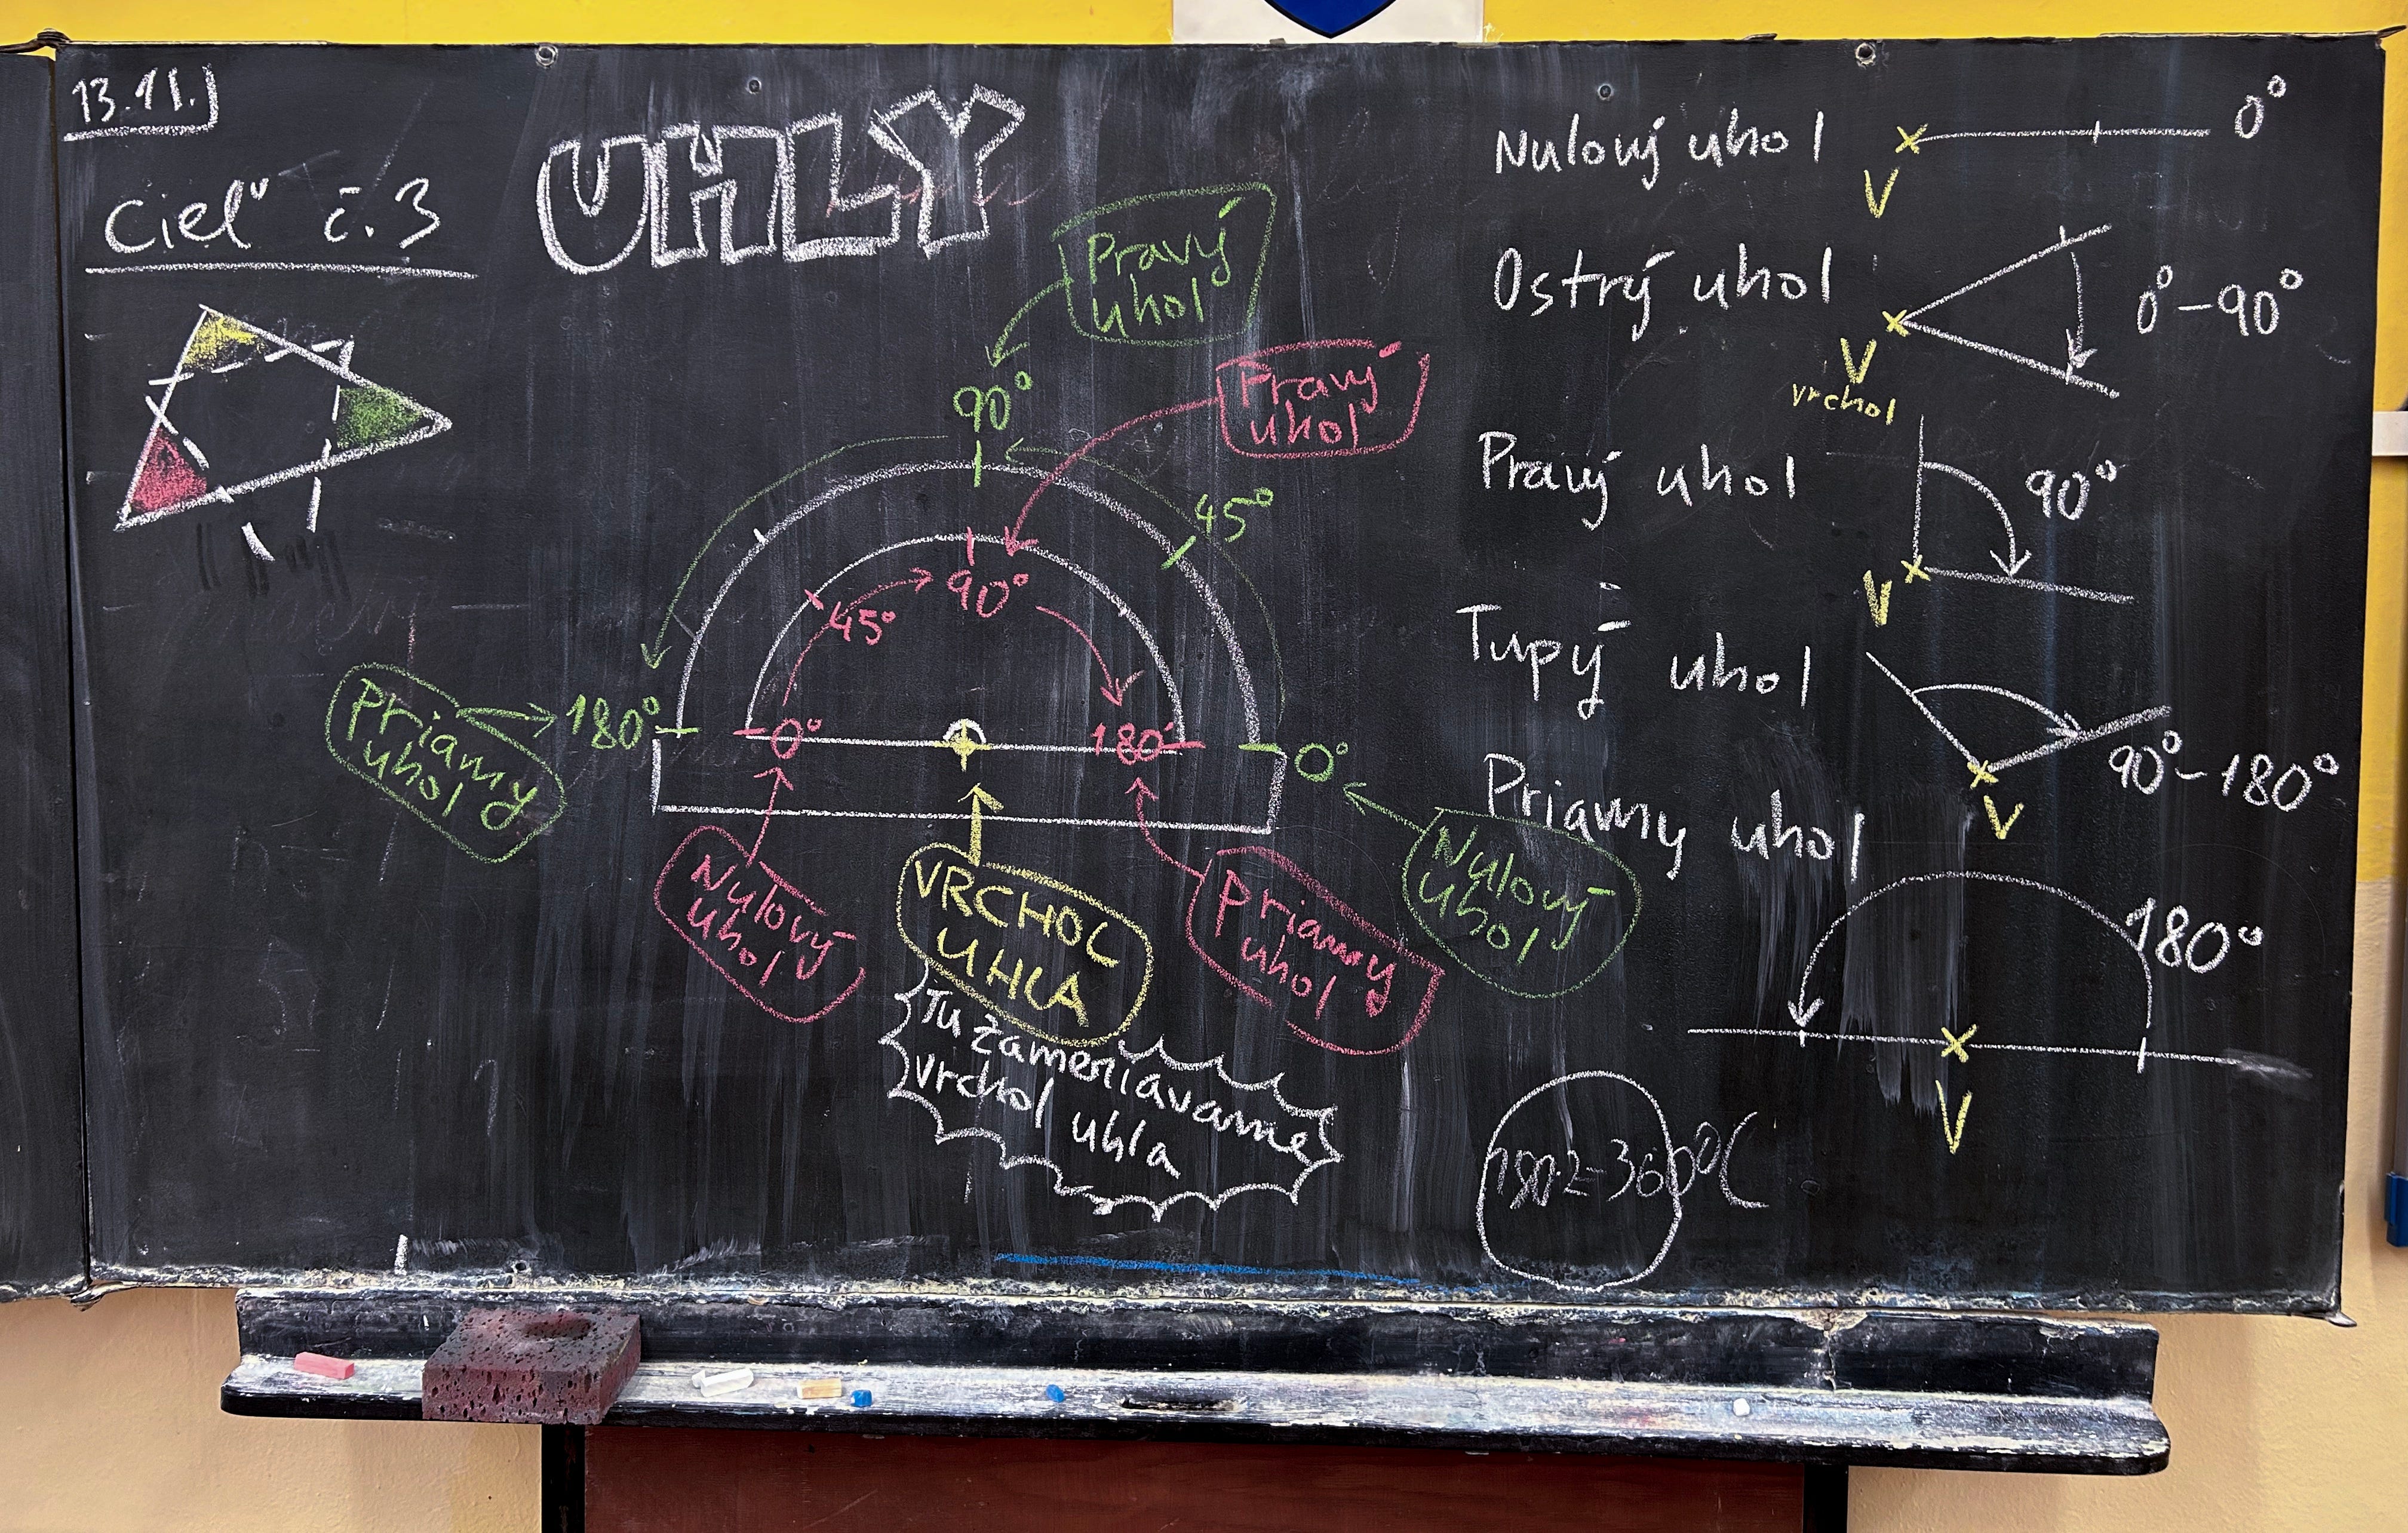 13.11.
Cieľ č.3
UHLY
Pravý
uhol
90°
Pravý
uhol
45°
90°
45°
Priamy
uhol
180°
0°
180°
0°
Nulový
uhol
VRCHOL
UHLA
Priamy
uhol
Nulový
uhol
Tu zameriavame
vrchol uhla
Nulový uhol
V
0°
Ostrý uhol
V
vrchol
0°-90°
Pravý uhol
V
90°
Tupý uhol
V
90°-180°
Priamy uhol
180°
V
180·2=360°